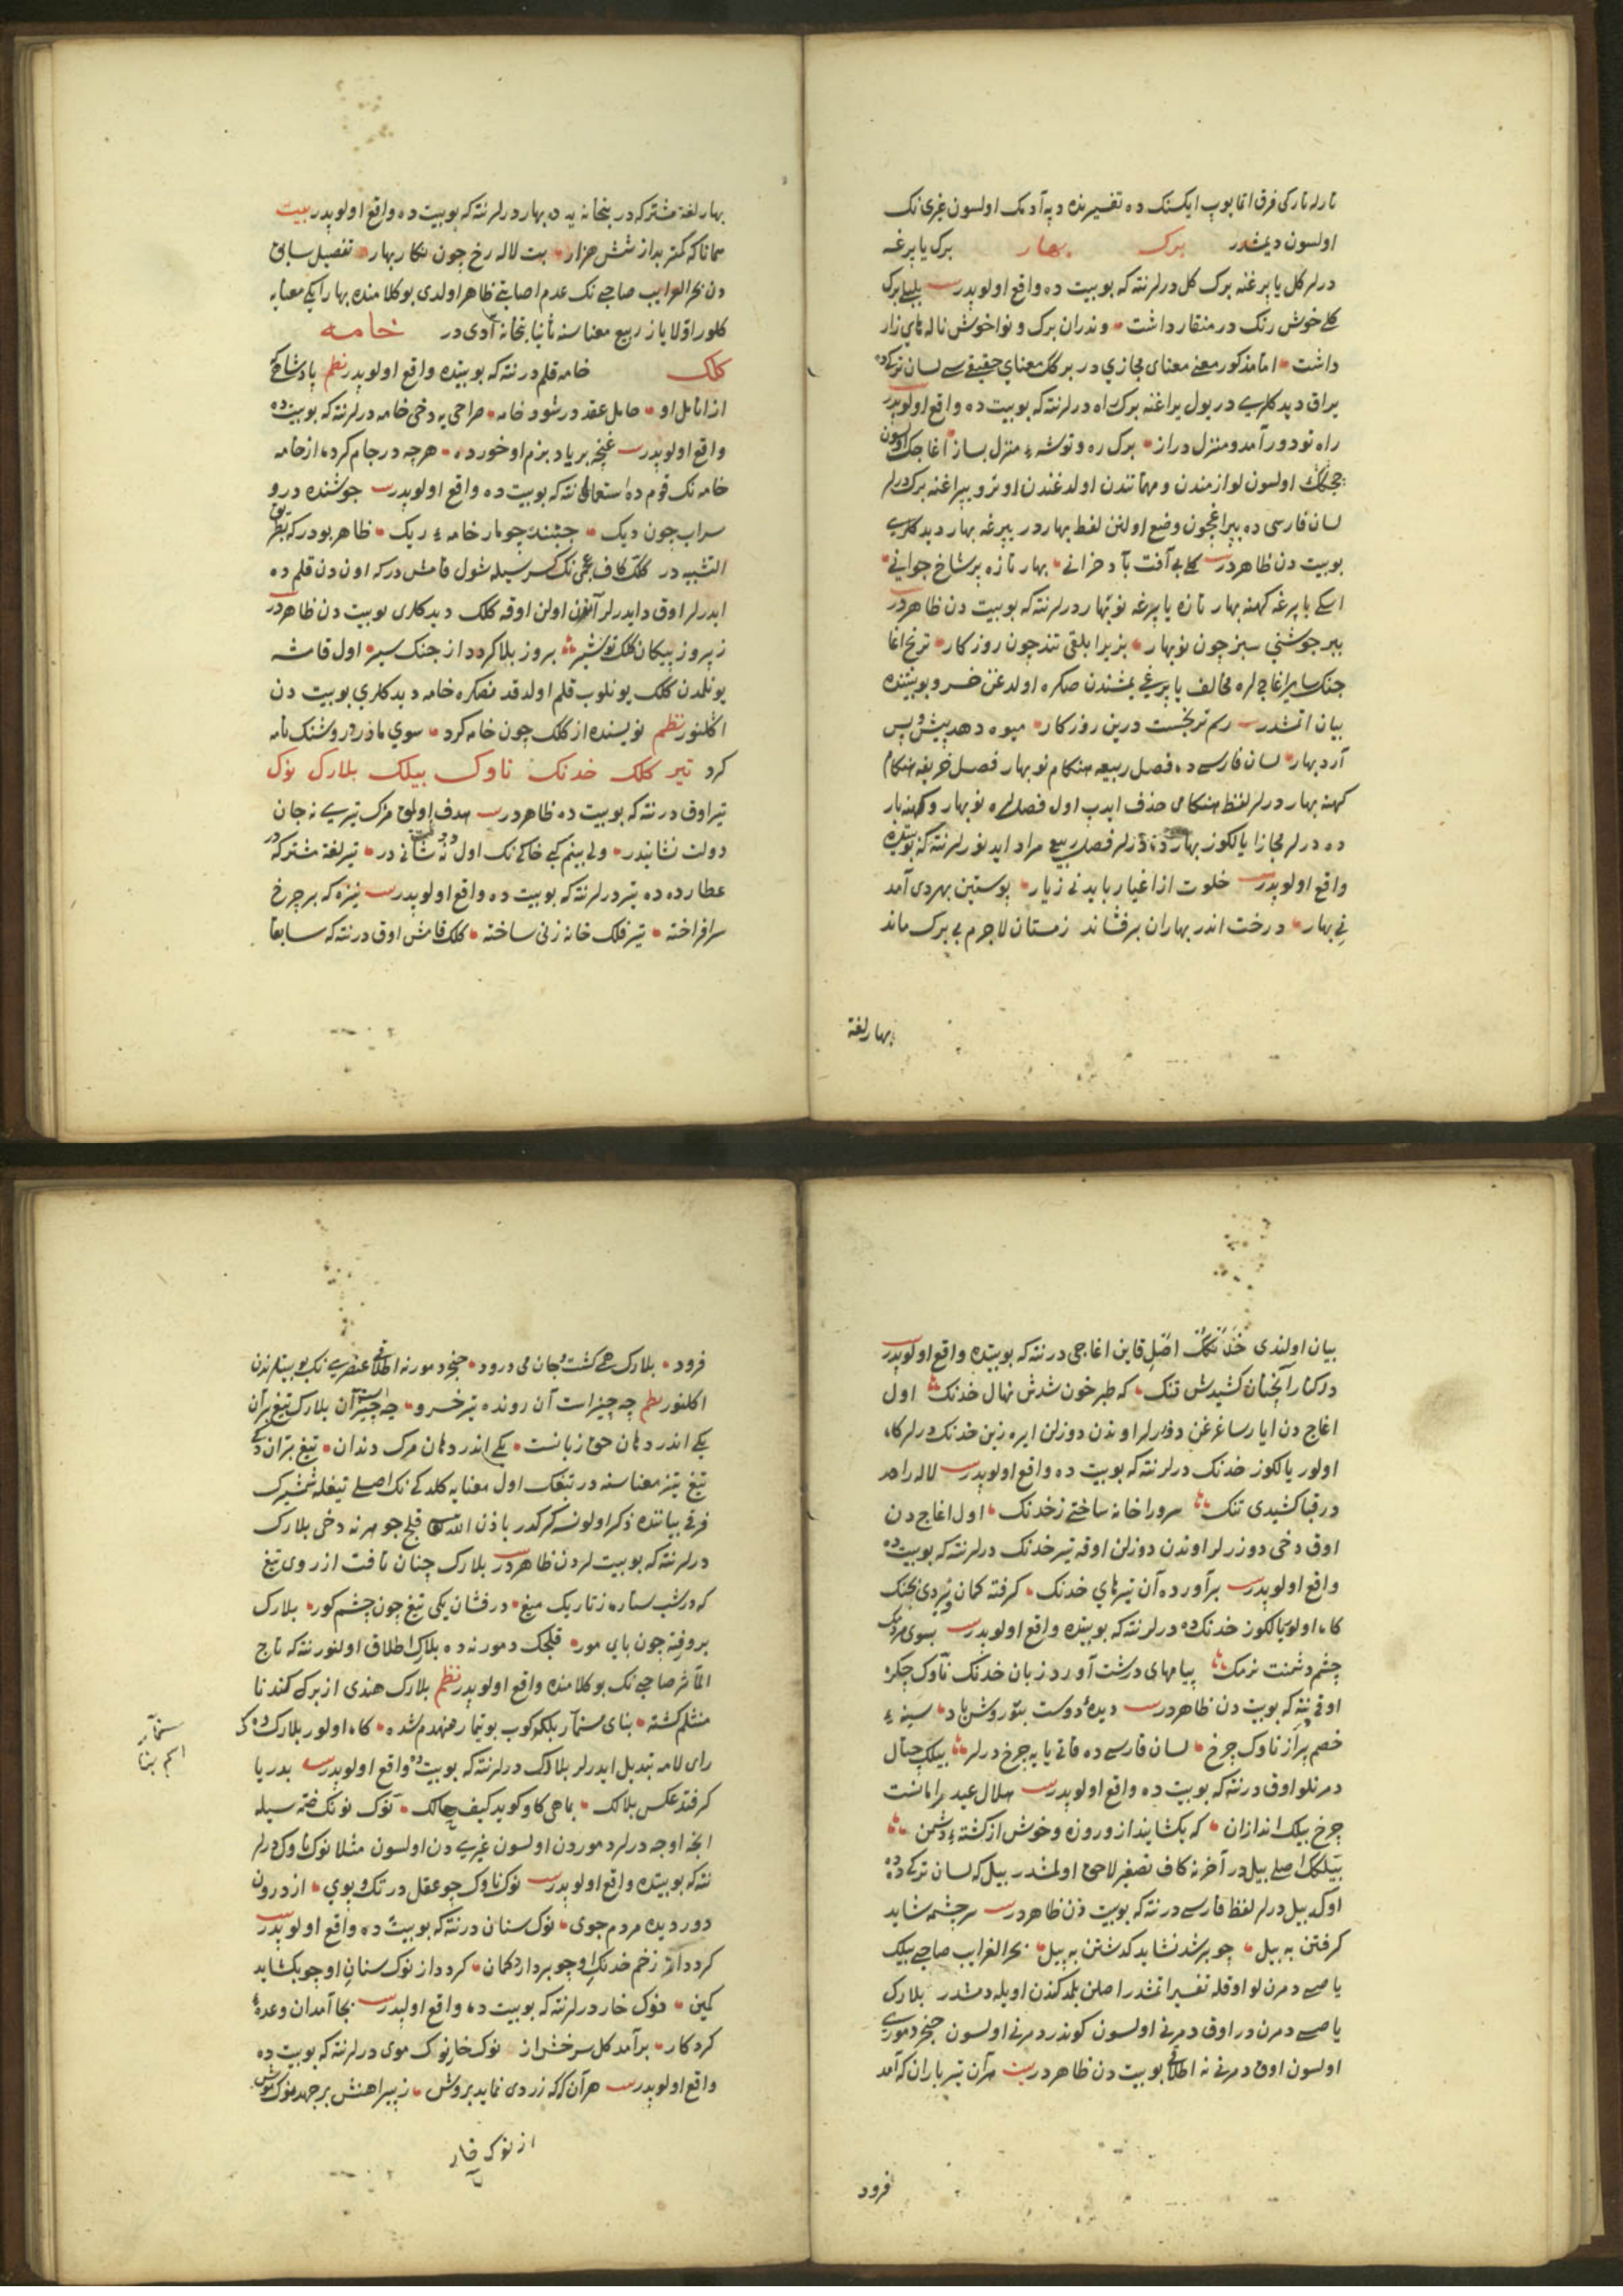 نارله نارکی فرق اتمایوب ایکسنک ده تفسیرنده دیه آدمک اولسون غیری نک
اولسون دیمشدر برک بهار برک یاپرغه
درلر کل یاپرغنه برک کل درلر نته که بو بیت ده واقع اولوبدر بیت بلبلی برک
کلی خوش رنک در منقار داشت وندران برک و نوا خوش ناله های زار
داشت اما مذکور معنی معنای مجازی در برکک معنای حقیقی سی لسان ترکیده
یراق دیدکلری در یول یراغنه برک راه درلر نته که بو بیت ده واقع اولوبدر بیت
راه تو دور آمد و منزل دراز برک ره و توشهٔ منزل بساز اغاجک اولسون
چچکک اولسون لوازمندن و مهماتندن اولدغندن اوترو یپراغنه برک درلر
لسان فارسی ده یپراغیچون وضع اولنن لفظ بهار در یپرغه بهار دیدکلری
بو بیت دن ظاهردر بیت کلی بی آفت باد خزانی بهار تازه بر شاخ جوانی
اسکی یاپرغه کهنه بهار تازه یاپرغه نوبهار درلر نته که بو بیت دن ظاهردر بیت
ببر جوشنی سبز چون نوبهار بزیر ابلقی تند چون روزکار ترنج اغا
جنک سایر اغاجلره مخالف یاپرغی یمشندن صکره اولدغن خسرو بو بیتنده
بیان اتمشدر بیت رسم ترنجست درین روزکار میوه دهد پیش و پس
آرد بهار لسان فارسی ده فصل ربیعه هنکام نوبهار فصل خریفه هنکام
کهنه بهار درلر لفظ هنکامی حذف ایدب اول فصللره نوبهار و کهنه بهار
ده درلر مجازا یالکوز بهار درلر فصل ربیع مراد ایدنورلر نته که بو بیتده
واقع اولوبدر بیت خلوت از اغیار باید نی زیار پوستین بهر دی آمد
نی بهار درخت اندر بهاران برفشاند زمستان لاجرم بی برک ماند
بهار لغة
بهار لغة مشترکه در بتخانه یه ده بهار درلر نته که بو بیت ده واقع اولوبدر بیت
همانا که کمتر بد از شش هزار بت لاله رخ چون نکار بهار تفصیل سابق
دن بحر الغرایب صاحبی نک عدم اصابتی ظاهر اولدی بو کلامنده بهار ایکی معنایه
کلور اولا یاز ربیع معناسنه ثانیا بتخانه آدی در خامه
کلک خامه قلم در نته که بو بیتده واقع اولوبدر نظم پادشاهی که
از انامل او حامل عقد در شود خامه صراحی یه دخی خامه درلر نته که بو بیت ده
واقع اولوبدر بیت غنچه بر یاد بزم او خورده هرچه در جام کرده از خامه
خامه نک قوم ده استعمالی نته که بو بیت ده واقع اولوبدر بیت جوشنده درو
سراب چون دیک جنبنده چو مار خامهٔ ریک ظاهر بودر که بطریق
التشبیه در کلک کاف عجمی نک کسرسیله شول قامش درکه اوندن قلم ده
ایدرلر اوق دا ایدرلر آنکچون اولن اوقه کلک دیدکلری بو بیت دن ظاهردر بیت
زپیروز پیکان کلک تو شیر بروز بلا کردد از جنک سیر اول قامشه
یونلمدن کلک یونلوب قلم اولدقدنصکره خامه دیدکلری بو بیت دن
اکلنور نظم نویسنده از کلک چون خامه کرد سوی مادر روشنک نامه
کرد تیر کلک خدنک ناوک بیلک بلارک نوک
تیر اوق در نته که بو بیت ده ظاهردر بیت هدف اولمق مژک تیری نه جان
دولت نشانیدر ولی بنم کبی خاکی نک اول نه نشانی در تیر لغة مشترکه در
عطارده ده تیر درلر نته که بو بیت ده واقع اولوبدر بیت نیزه که بر چرخ
سرافراخته تیر فلک خانه زنی ساخته کلک قامش اوق در نته که سابقا
بیان اولندی خدنکک اصل قاین اغاجی در نته که بو بیتده واقع اولوبدر بیت
در کنار آنچنان کشیدش تنک که طبرخون شدش نهال خدنک اول
اغاج دن ایار ساغرغن دوزرلر اوندن دوزلن ایره زین خدنک درلر کاه
اولور یالکوز خدنک درلر نته که بو بیت ده واقع اولوبدر بیت لاله را هد
در قبا کشیدی تنک سرو را خانه ساختی ز خدنک اول اغاج دن
اوق دخی دوزرلر اوندن دوزلن اوقه تیر خدنک درلر نته که بو بیت ده
واقع اولوبدر بیت برآورده آن تیرهای خدنک کرفته کمان نبردی بجنک
کاه اولور یالکوز خدنک ده درلر نته که بو بیتده واقع اولوبدر بیت بسوی مردمک
چشم دشمنت نرمک پیامهای درشت آورد زبان خدنک ناوک جکره
اوقی نته که بو بیت دن ظاهردر بیت دیدهٔ دوست بتو روشن باد سینهٔ
خصم پر از ناوک چرخ لسان فارسی ده قاتی یایه چرخ درلر بیلک چتال
دمرنلو اوق در نته که بو بیت ده واقع اولوبدر بیت هلال عید را مانست
چرخ بیلک اندازان که بکشایند ازو روزه و خوش از کشتهٔ دشمن
بیلکک اصلی بیل در آخرنه کاف تصغیر لاحق اولمشدر بیل که لسان ترکی ده ده
اوکه بیل درلر لفظ فارسی در نته که بو بیت دن ظاهردر بیت سرچشمه شاید
کرفتن به بیل چو پر شد نشاید کذشتن به پیل بحر الغرایب صاحبی بیلک
یاصی دمرنلو اوقله تفسیر اتمشدر اصلن بلمدکندن اویله دمشدر بلارک
یاصی دمرن در اوق دمرنی اولسون کوندر دمرنی اولسون خنجر دموری
اولسون اوق دمرنی نه اطلاقی بو بیت دن ظاهردر بیت هر آن تیر باران که آمد
فرود
فرود بلارک همی کشت و جان می درود خنجر دمورنه اطلاقی عنصری نک بو بیتلرندن
اکلنور نظم چه چیز است آن رونده تیر خسرو چه چیز است آن بلارک تیغ بران
یکی اندر دهان حق زبانست یکی اندر دهان مرک دندان تیغ بران دیمک
تیغ تیز معناسنه در تیغک اول معنایه کلدکی نک اصلی تیغله شمشیرک
فرقی بیاننده ذکر اولونسه کرکدر باذن الله قلج جوهرنه دخی بلارک
درلر نته که بو بیت لردن ظاهردر بیت بلارک چنان تافت از روی تیغ
که در شب ستاره ز تاریک میغ درفشان یکی تیغ چون چشم کور بلارک
بروفته چون پای مور قلجک دمورنه ده بلارک اطلاق اولنور نته که تاج
المآثر صاحبی نک بو کلامنده واقع اولوبدر نظم بلارک هندی از برک کندنا
منثلم کشته بنای سنمار بلکه کوب بوتیمار منهدم شده کاه اولور بلارک ده کی
رای لامه تبدیل ایدرلر بلالک درلر نته که بو بیت ده واقع اولوبدر بیت بدریا
کر فتد عکس بلالک ماهی کاو کوید کیف حالک نوک نونک ضمه سیله
انجه اوجه درلر دموردن اولسون غیری دن اولسون مثلا نوک ناوک درلر
نته که بو بیتده واقع اولوبدر بیت نوک ناوک چو عقل در تک و پوی از درون
دور دیده مردم جوی نوک سنان در نته که بو بیت ده واقع اولوبدر بیت
کردد از زخم خدنک او چو بردارد کمان کردد از نوک سنان او چو بکشاید
کمین نوک خار درلر نته که بو بیت ده واقع اولبدر بیت بجا آمدان وعدهٔ
کردکار برآمد کل سرخش از نوک خار نوک موی درلر نته که بو بیت ده
واقع اولوبدر بیت هر آن رک که زردی نماید بروش ز پیراهنش برجهد نوک موش
از نوک خار
سنمار
اسم بنا